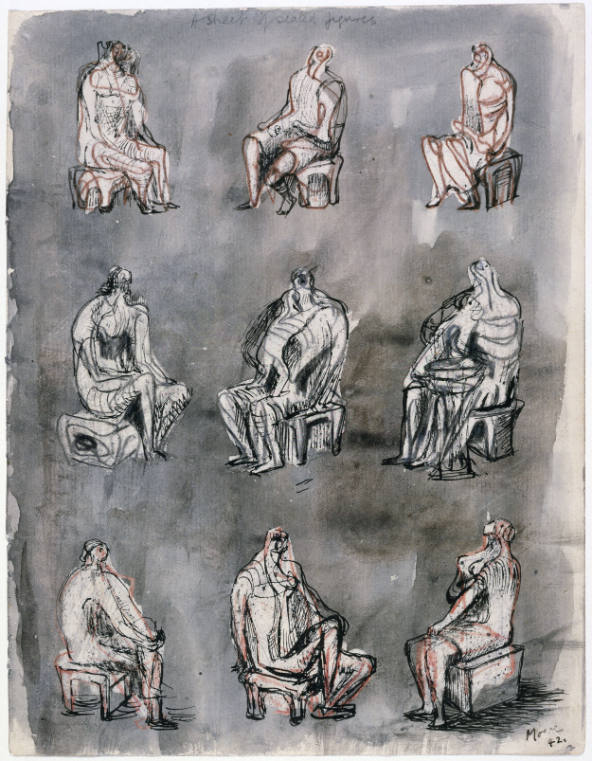 A sheet of seated figures
Moore
42.